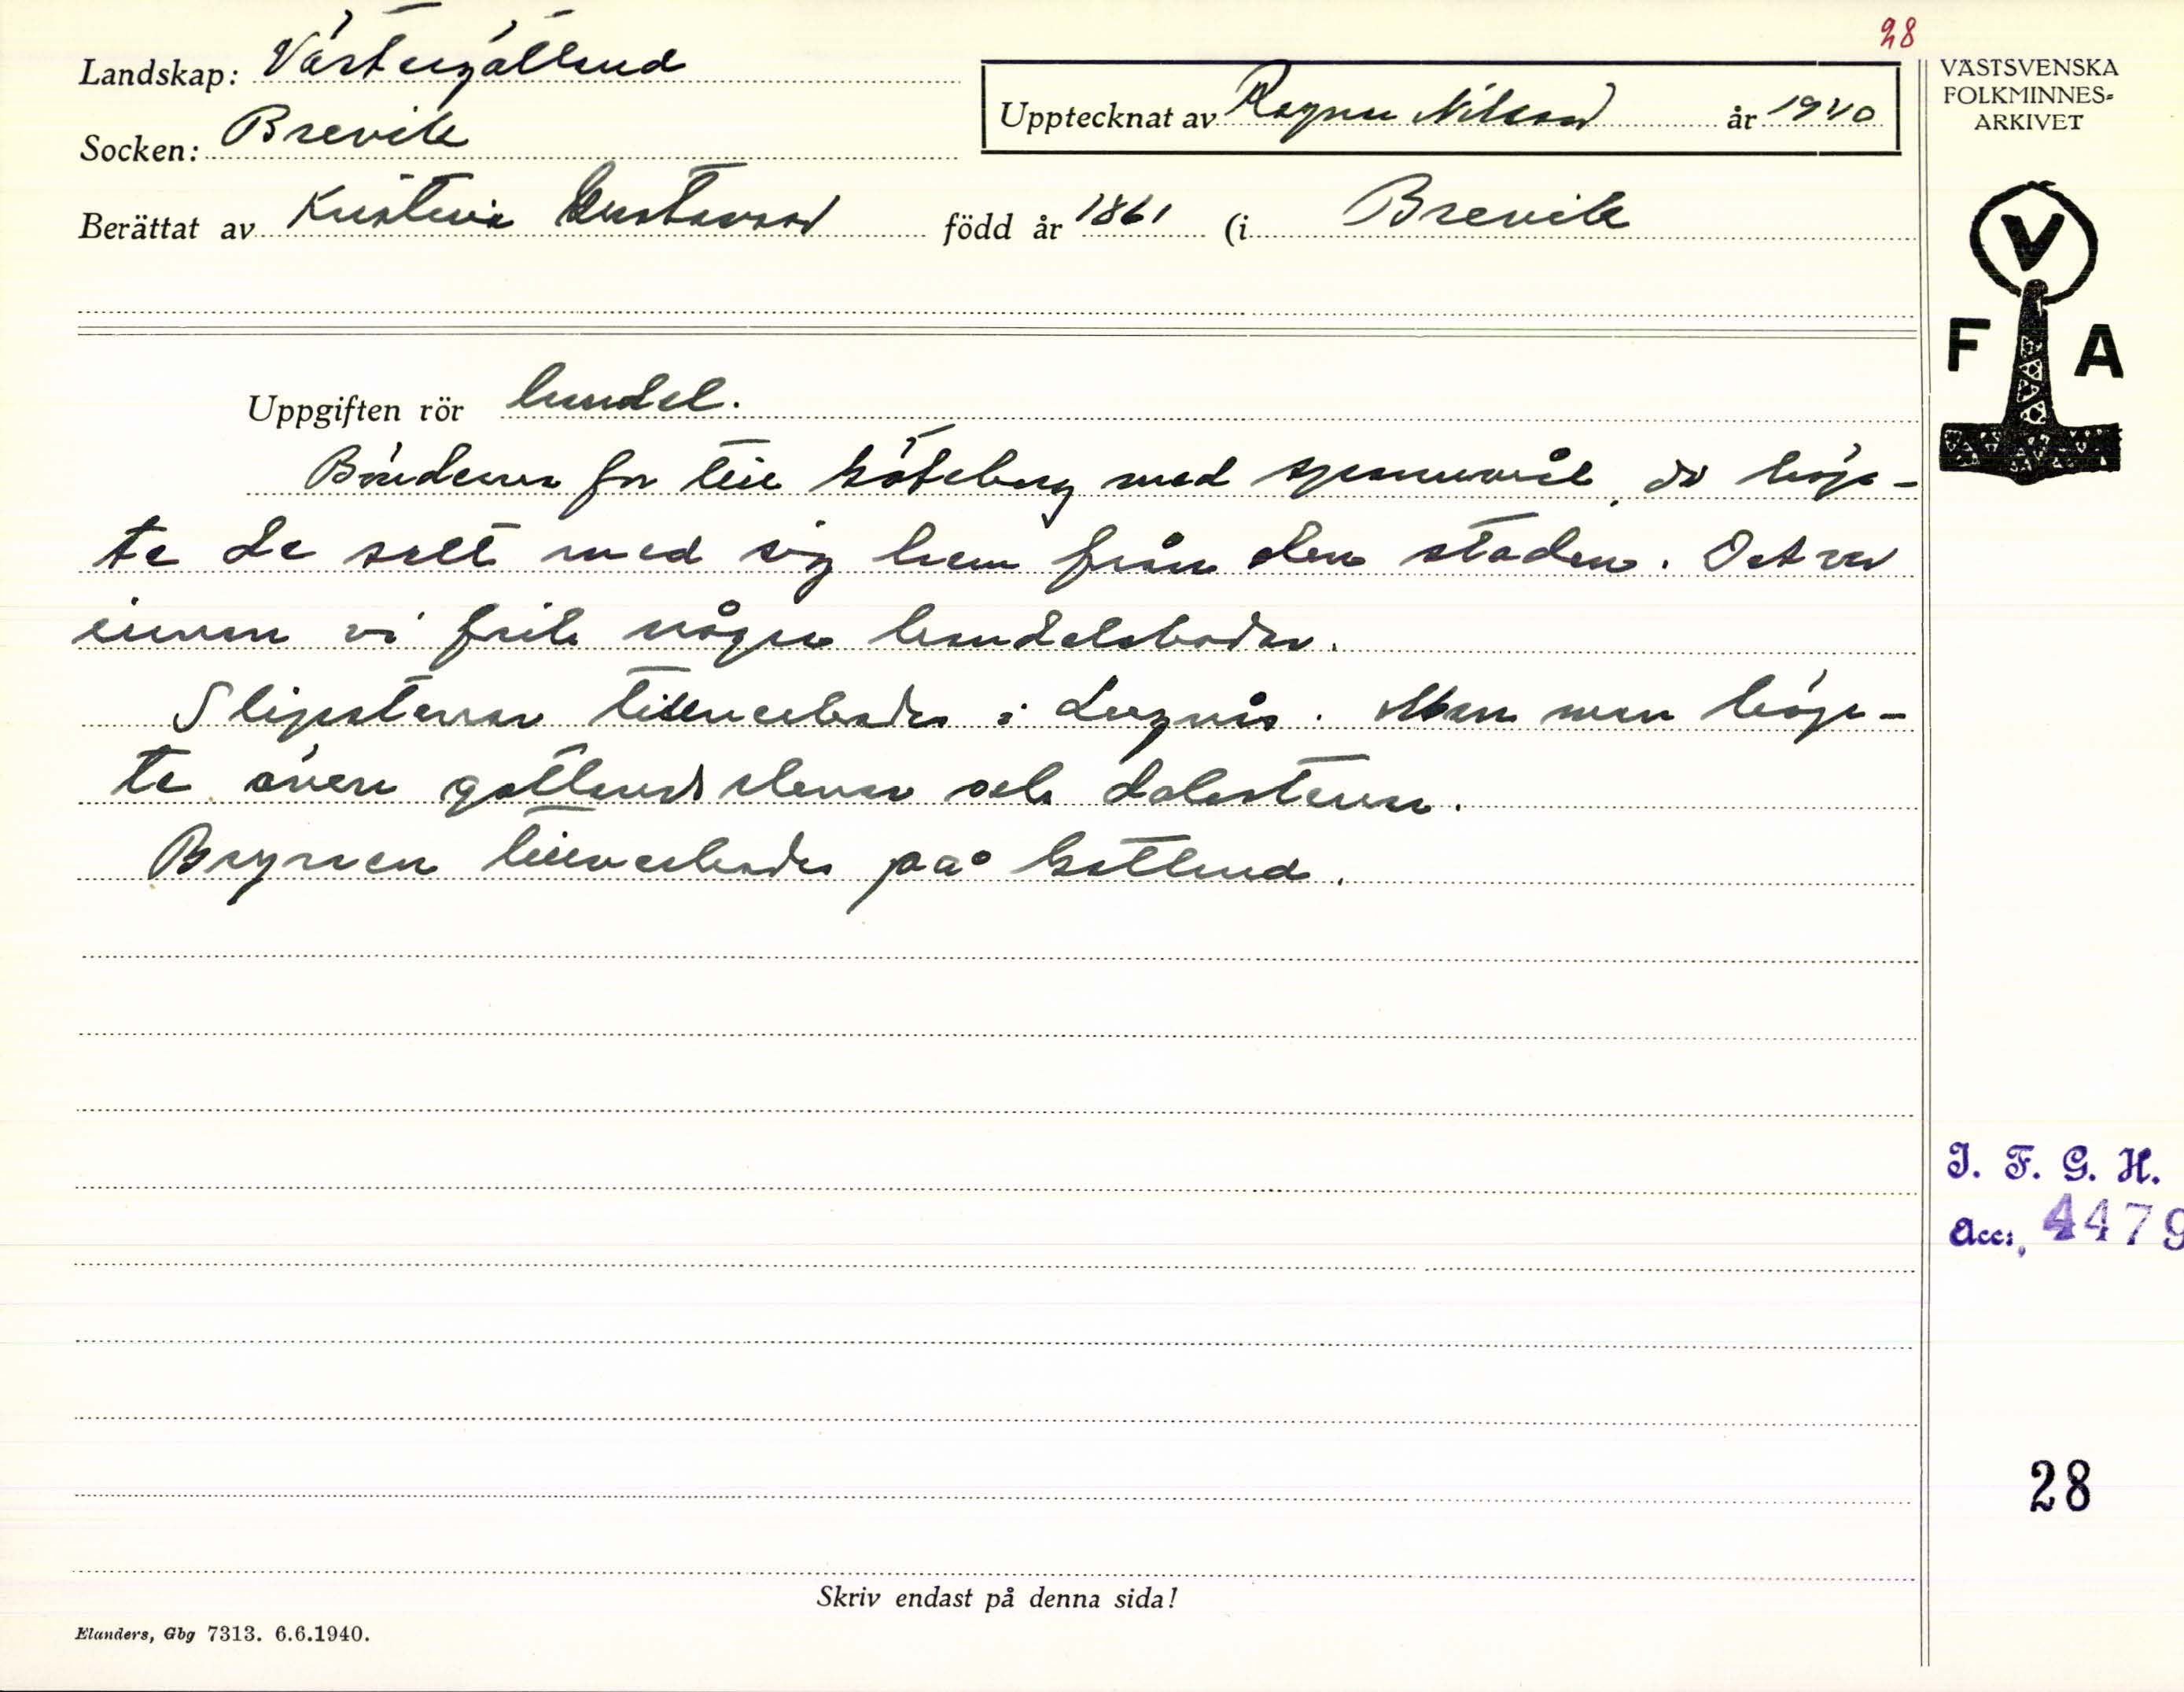 28
Landskap: Västergötland
VÄSTSVENSKA
FOLKMINNES-
ARKIVET
Upptecknat av Ragnar Nilsson år 1940
Socken: Brevik
Berättat av Kristina Gustavsson född år 1861 (i Brevik
V
F A
Uppgiften rör handel.
Bönderna for till Göteborg med spannmål, då köp-
te de salt med sig hem från den staden. Det var
innan vi fick några handelsbodar.
Slipstenar tillverkades i Lugnås. Men man köp-
te även gotlandsstenar och dalastenar.
Brynen tillverkades på Gotland.
I. F. G. H.
Acc. 4479
28
Skriv endast på denna sida!
Elanders, Gbg 7313. 6.6.1940.